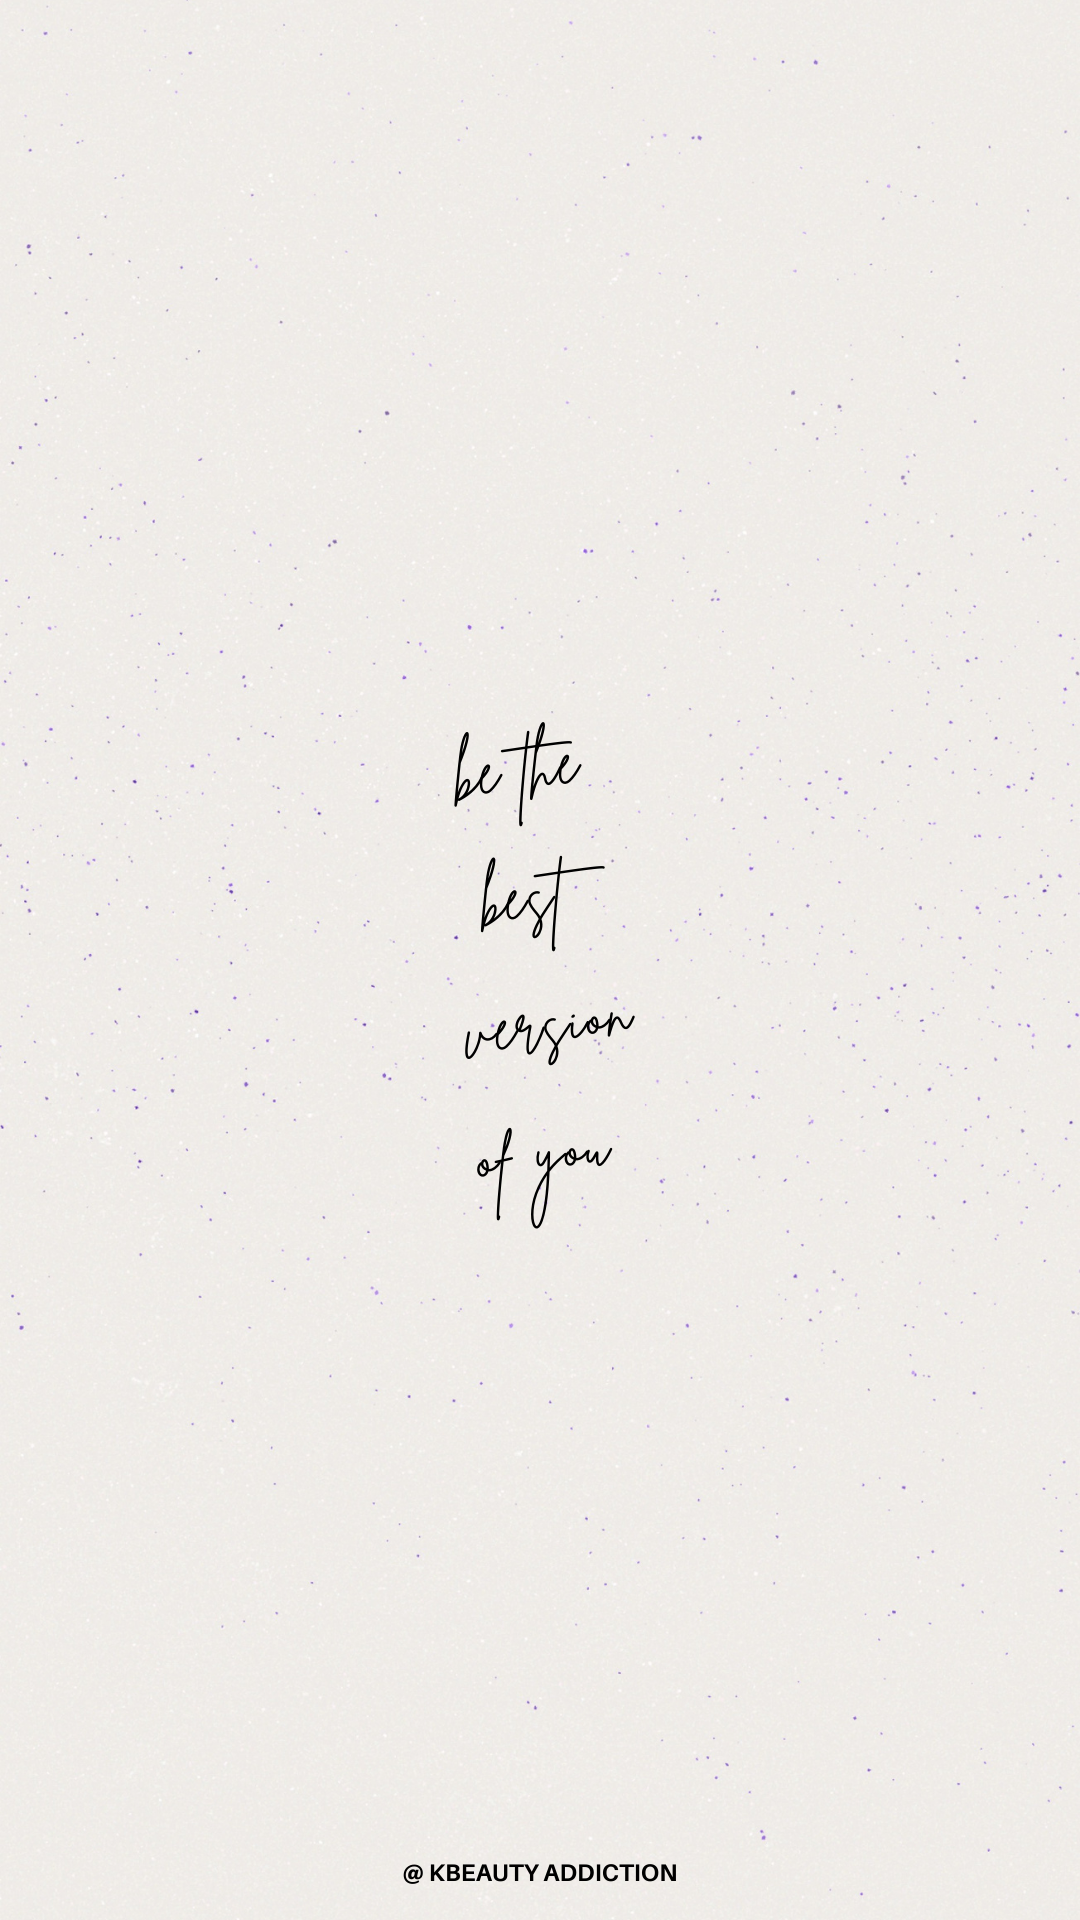 be the
best
version
of you
@ KBEAUTY ADDICTION